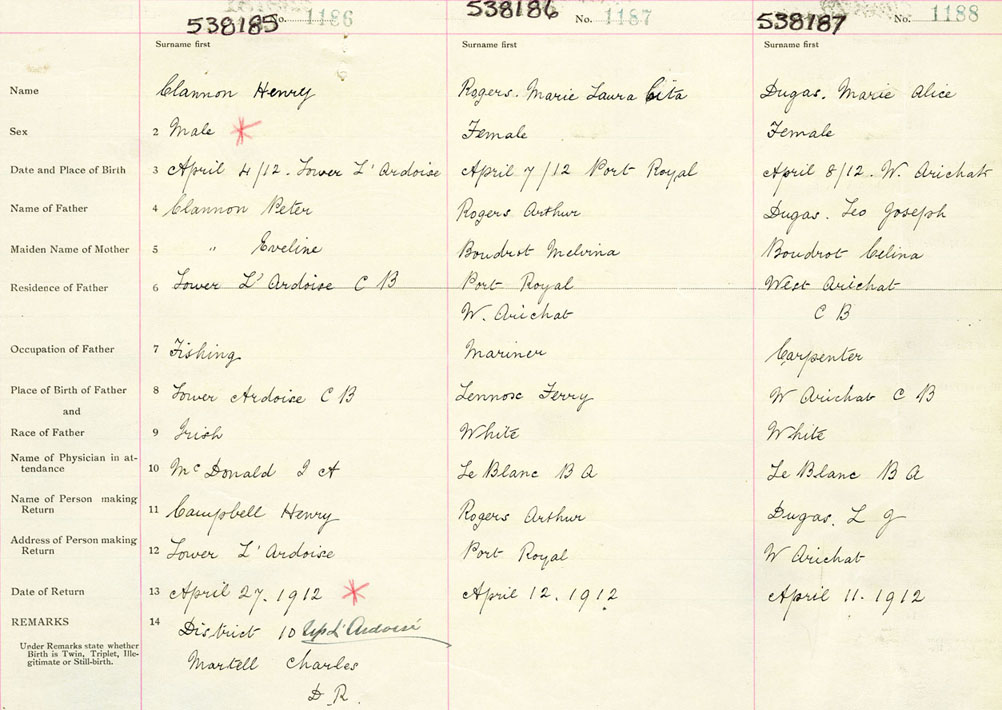 538185 No. 1186 538186 No. 1187 538187 No. 1188
Surname first Surname first Surname first
Name Clannon Henry Rogers. Marie Laura Cita Dugas. Marie Alice
Sex 2 Male * Female Female
Date and Place of Birth 3 April 4/12. Lower L'Ardoise April 7/12 Port Royal April 8/12. W. Arichat
Name of Father 4 Clannon Peter Rogers Arthur Dugas. Leo Joseph
Maiden Name of Mother 5 " Eveline Boudrot Melvina Boudrot Celina
Residence of Father 6 Lower L'Ardoise C B Port Royal West Arichat
W. Arichat C B
Occupation of Father 7 Fishing Mariner Carpenter
Place of Birth of Father 8 Lower Ardoise C B Lennox Ferry W Arichat C B
and
Race of Father 9 Irish White White
Name of Physician in at-
tendance 10 McDonald J A Le Blanc B A Le Blanc B A
Name of Person making
Return 11 Campbell Henry Rogers Arthur Dugas, L J
Address of Person making
Return 12 Lower L'Ardoise Port Royal W Arichat
Date of Return 13 April 27. 1912 * April 12. 1912 April 11. 1912
REMARKS 14 District 10 Up L'Ardoise
Under Remarks state whether
Birth is Twin, Triplet, Ille-
gitimate or Still-birth. Martell Charles
D. R.